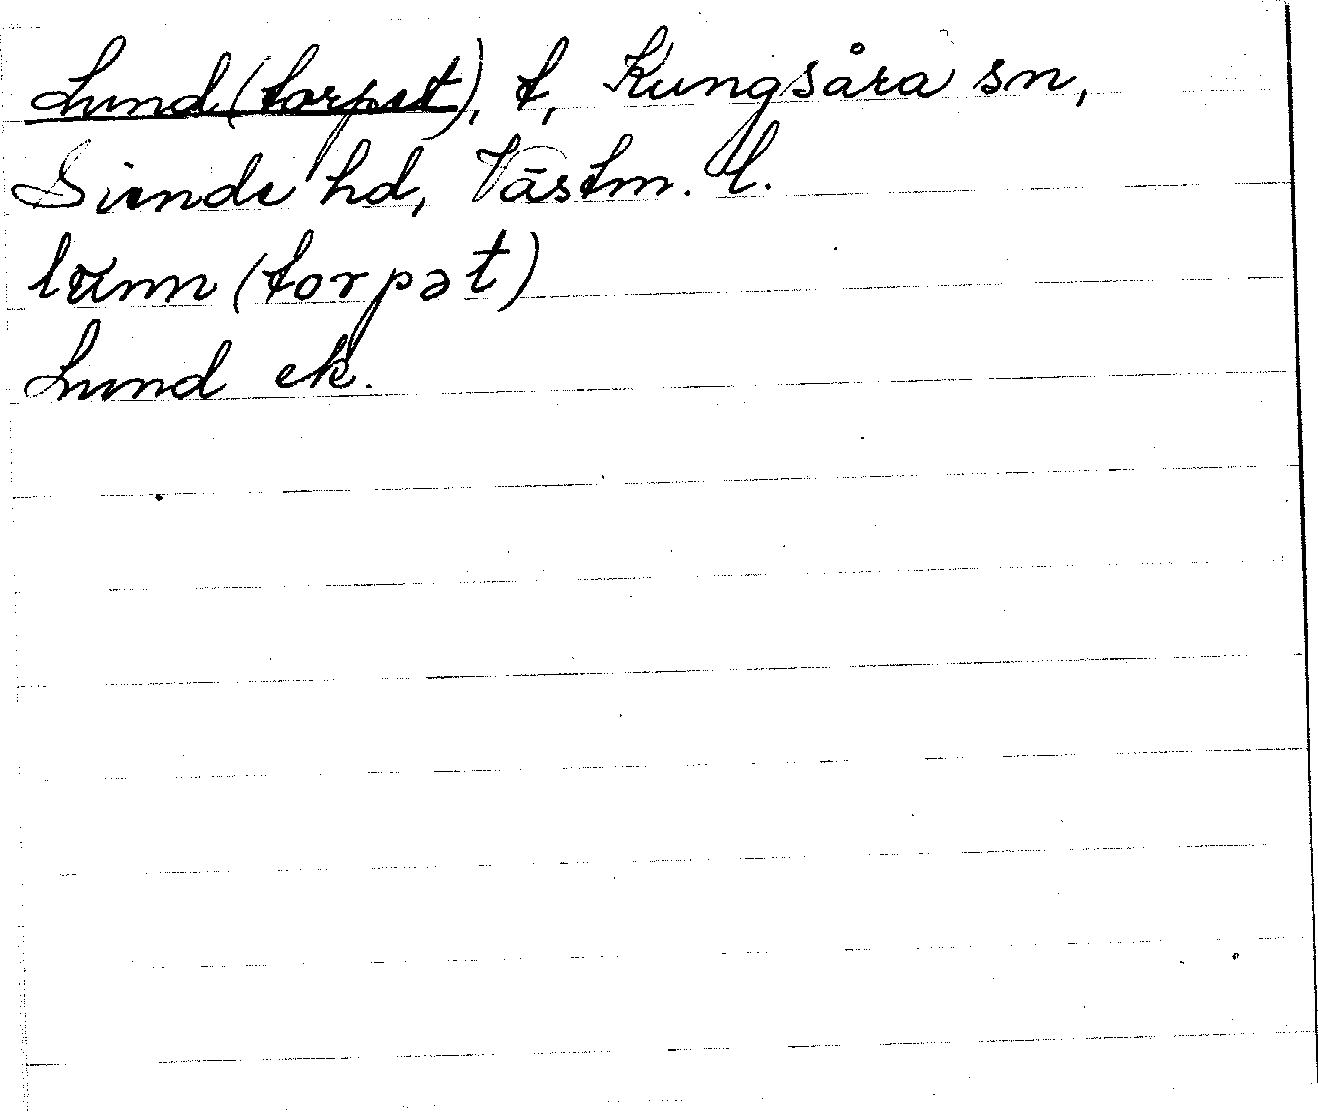 Lund (torpet), t, Kungsåra sn,
Siende hd, Västm. l.
lɯnn (torpət)
Lund ek.